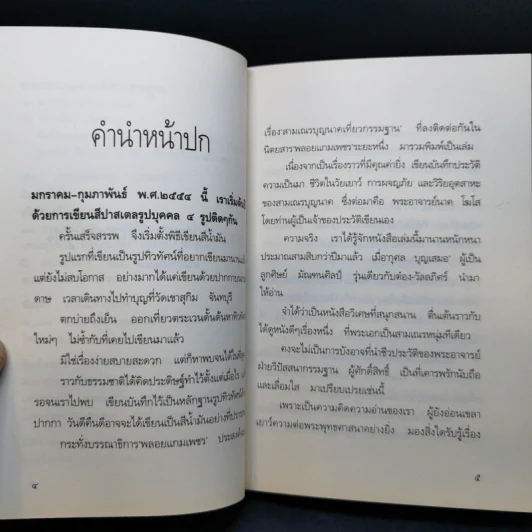 คำนำหน้าปก
มกราคม-กุมภาพันธ์ พ.ศ.๒๕๕๔ นี้ เราเริ่มต้น
ด้วยการเขียนสีปาสเตลรูปบุคคล ๔ รูปติดๆกัน
ครั้นเสร็จสรรพ จึงเริ่มตั้งพิธีเขียนสีน้ำมัน
รูปแรกที่เขียนเป็นรูปทิวทัศน์ที่อยากเขียนมานาน
แต่ยังไม่สบโอกาส อย่างมากได้แค่เขียนด้วยปากกาบน
ดาษ เวลาเดินทางไปทำบุญที่วัดเขาสุกิม จันทบุรี
ตกบ่ายถึงเย็น ออกเที่ยวตระเวนดั้นด้นหาทิว
ใหม่ๆ ไม่ซ้ำกับที่เคยไปเขียนมาแล้ว
มิใช่เรื่องง่ายสบายสะดวก แต่ก็หาพบจนได้ใน
ราวกับธรรมชาติได้คิดประดิษฐ์ทำไว้ตั้งแต่เมื่อไร
รอจนเราไปพบ เขียนบันทึกไว้เป็นหลักฐานรูปทิวทัศน์
ปากกา วันดีคืนดีอาจจะได้เขียนเป็นสีน้ำมันอย่างที่
กระทั่งบรรณาธิการ'พลอยแกมเพชร' ประสงค์
๔
เรื่อง'สามเณรบุญนาคเที่ยวกรรมฐาน' ที่ลงติดต่อกันใน
นิตยสาร'พลอยแกมเพชร'ระยะหนึ่ง มารวมพิมพ์เป็นเล่ม
เนื่องจากเป็นเรื่องราวที่มีคุณค่ายิ่ง เขียนบันทึกประวัติ
ความเป็นมา ชีวิตในวัยเยาว์ การผจญภัย และวิริยอุตสาหะ
ของสามเณรบุญนาค ซึ่งต่อมาคือ พระอาจารย์นาค โฆโส
โดยท่านผู้เป็นเจ้าของประวัติเขียนเอง
ความจริง เราได้รู้จักหนังสือเล่มนี้มานานหนักหนา
ประมาณสามสิบกว่าปีมาแล้ว เมื่อ'กุศล บุญเสมอ' ผู้เป็น
ลูกศิษย์ มัณฑนศิลป์ รุ่นเดียวกับต๋อง-วัลลภิศร์ นำมา
ให้อ่าน
จำได้ว่าเป็นหนังสือวิเศษที่สนุกสนาน ตื่นเต้นราวกับ
ได้ดูหนังดีๆเรื่องหนึ่ง ที่พระเอกเป็นสามเณรหนุ่มทีเดียว
คงจะไม่เป็นการบังอาจที่นำชีวประวัติของพระอาจารย์
ฝ่ายวิปัสสนากรรมฐาน ผู้ศักดิ์สิทธิ์ เป็นที่เคารพรักนับถือ
และเลื่อมใส มาเปรียบเปรยเช่นนี้
เพราะเป็นความคิดความอ่านของเรา ผู้ยังอ่อนเขลา
เยาว์ความต่อพระพุทธศาสนาอย่างยิ่ง มองสิ่งใดรับรู้เรื่อง
๕